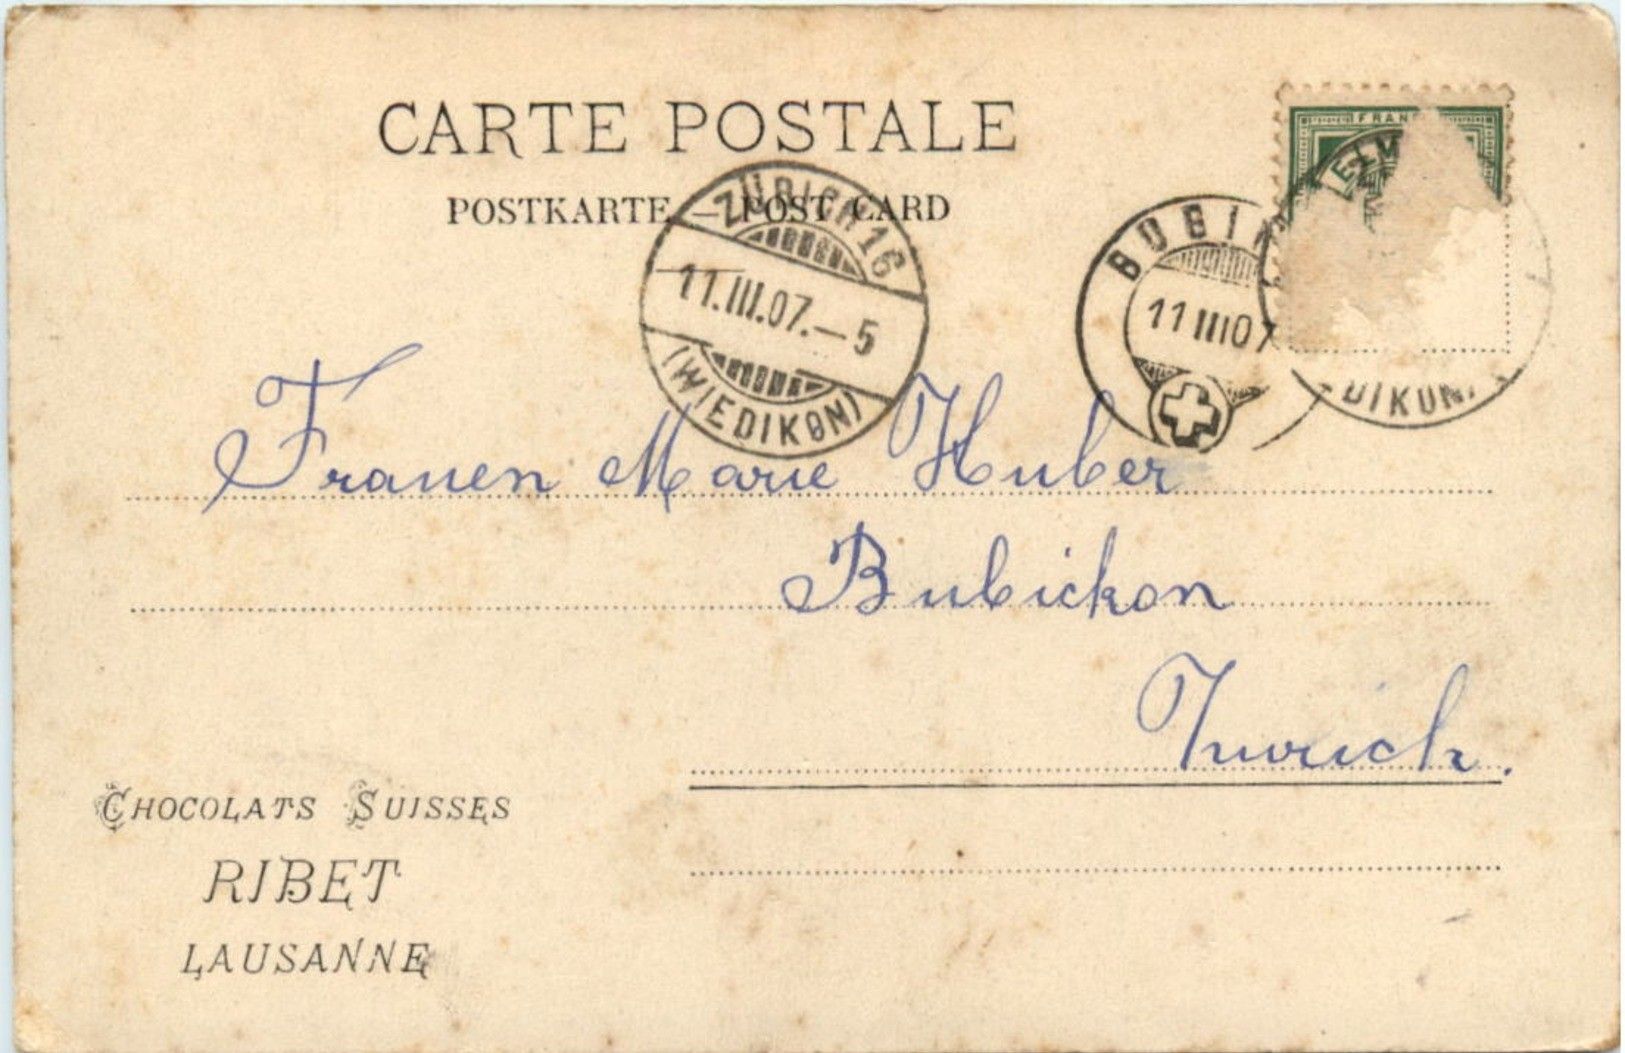 CARTE POSTALE
POSTKARTE — POST CARD
ZÜRICH 16
11.III.07.—5
(WIEDIKON)
BUBIK
11 III 07
FRAN
HELV
DIKON)
Frauen Marie Huber
Bubickon
Zurich.
CHOCOLATS SUISSES
RIBET
LAUSANNE